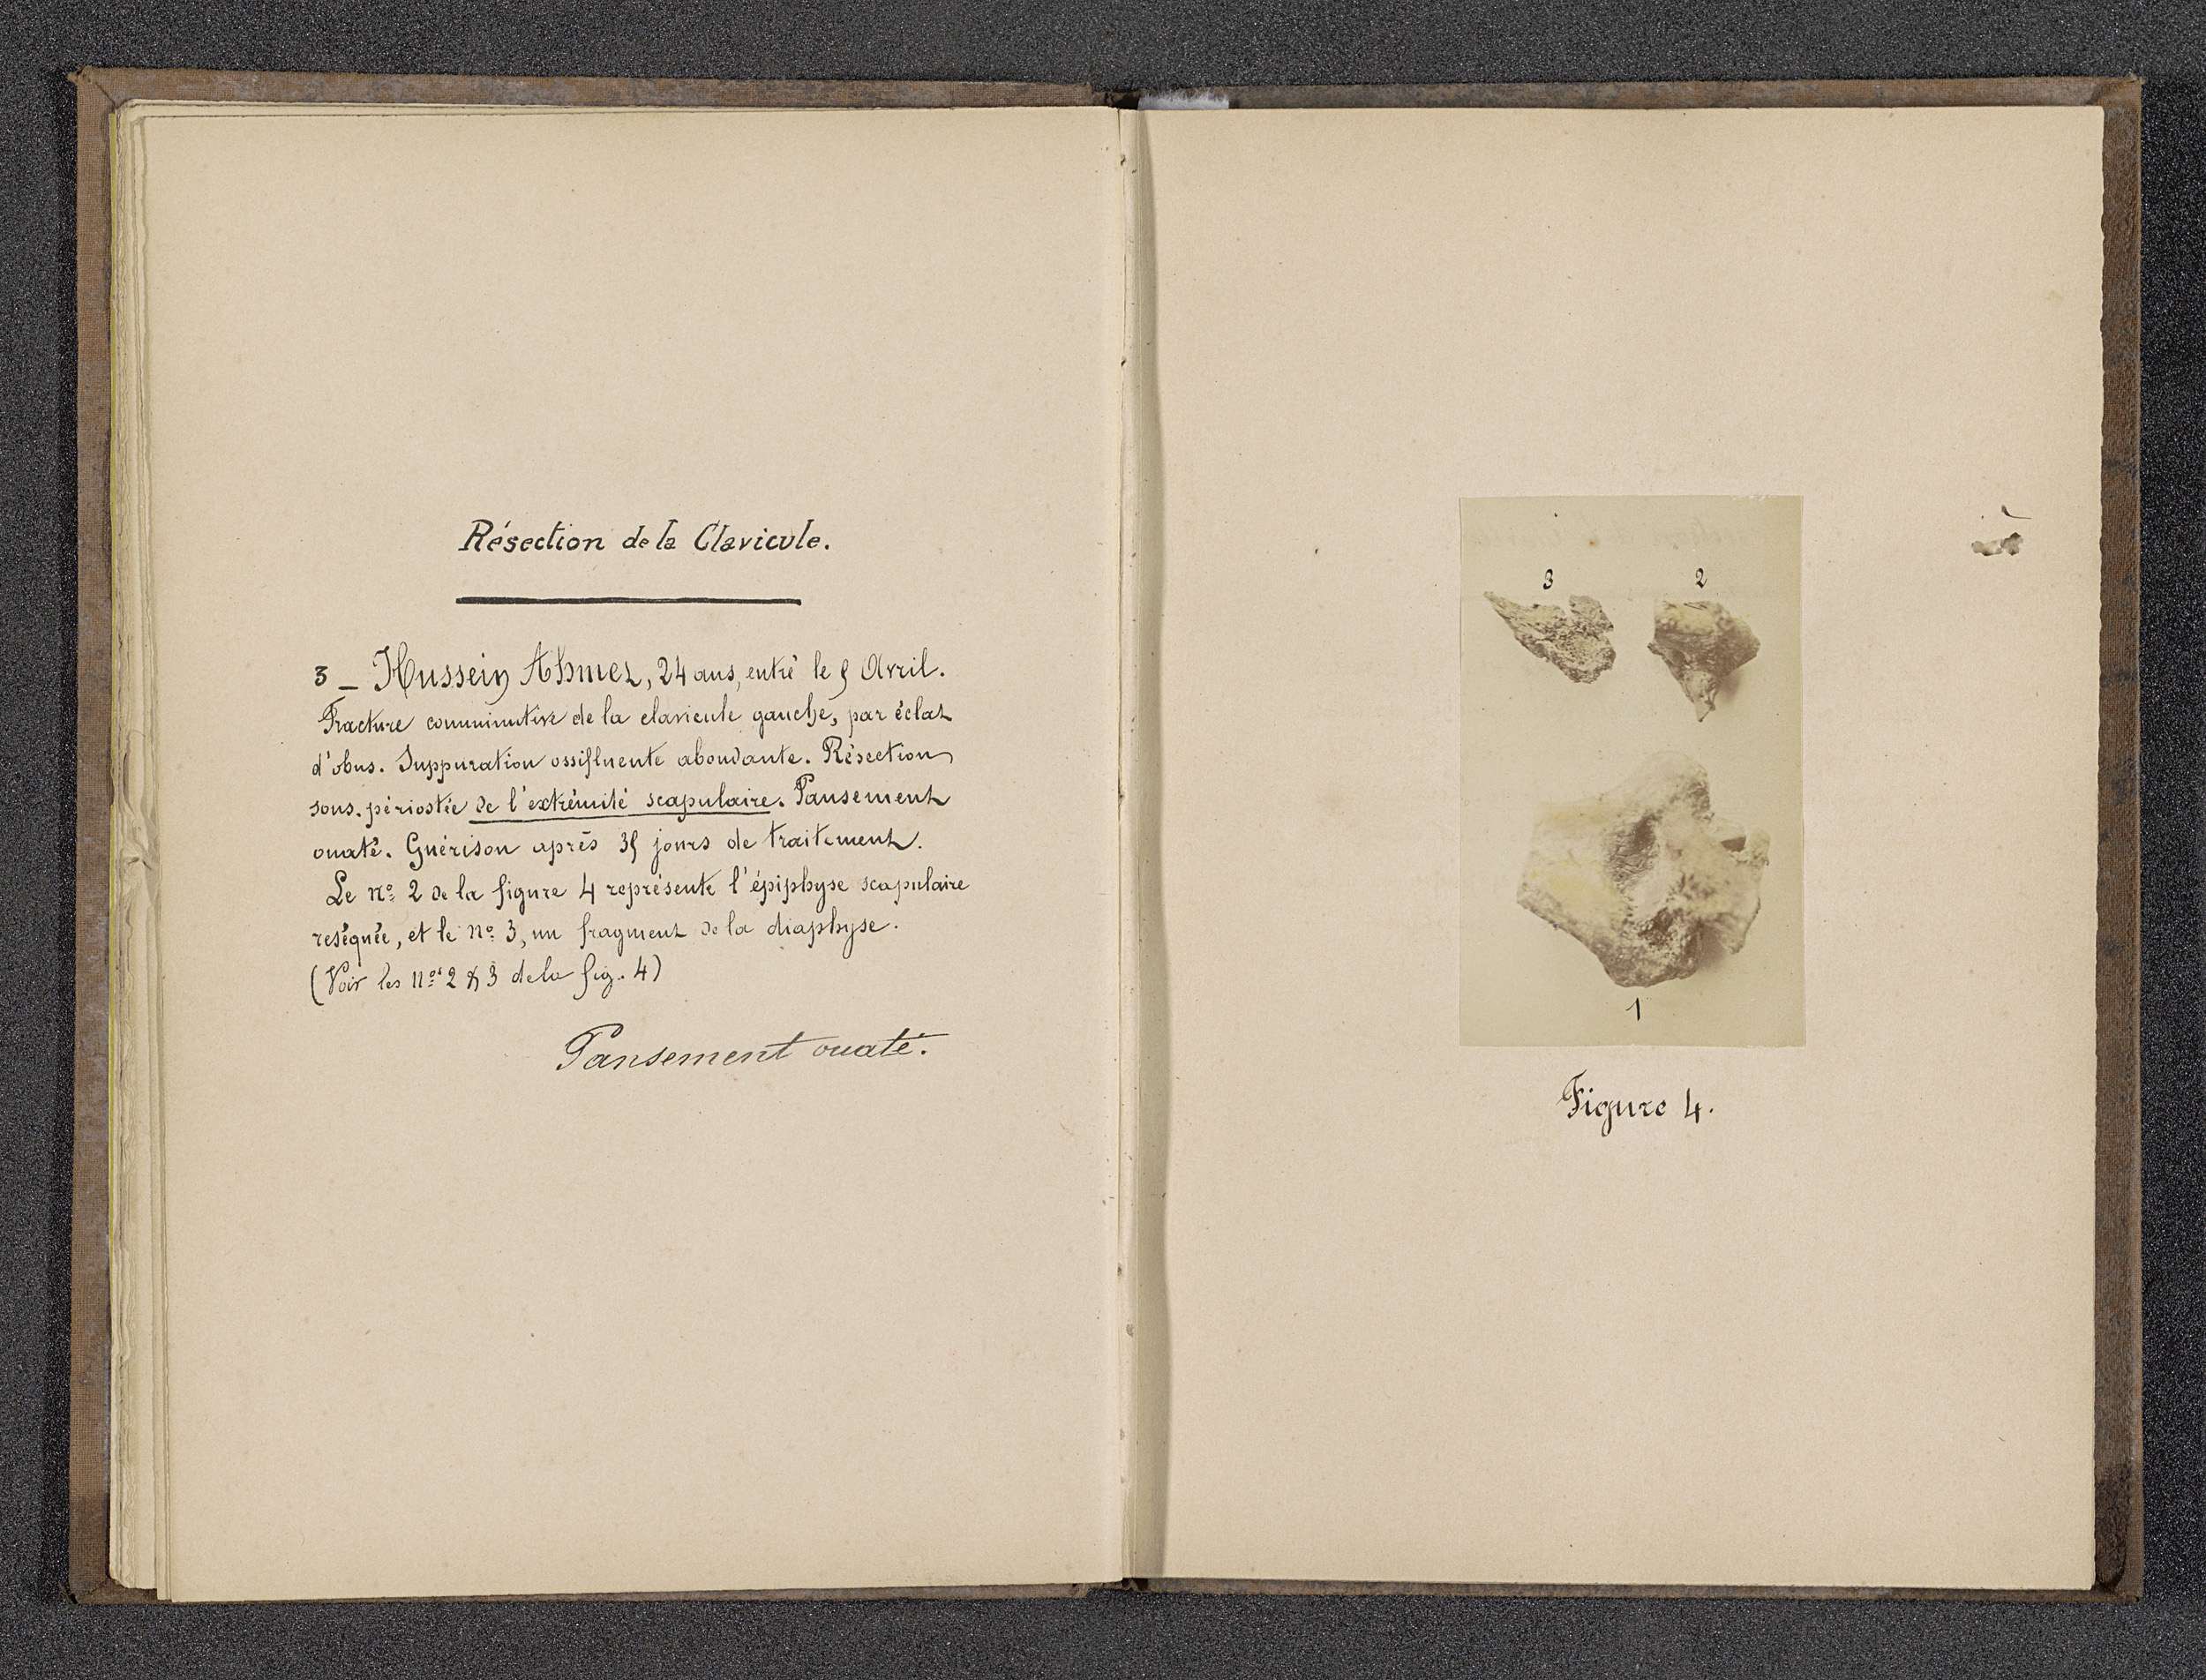 Résection de la Clavicule.
3 _ Hussein Ahmet, 24 ans, entré le 5 Avril.
Fracture comminutive de la clavicule gauche, par éclat
d'obus. Suppuration ossifluente abondante. Résection
sous-périostée de l'extrémité scapulaire. Pansement
ouaté. Guérison après 35 jours de traitement.
Le nº 2 de la figure 4 représente l'épiphyse scapulaire
reséquée, et le nº 3, un fragment de la diaphyse.
(Voir les nos 2 & 3 de la fig. 4)
Pansement ouaté.
3 2
1
Figure 4.